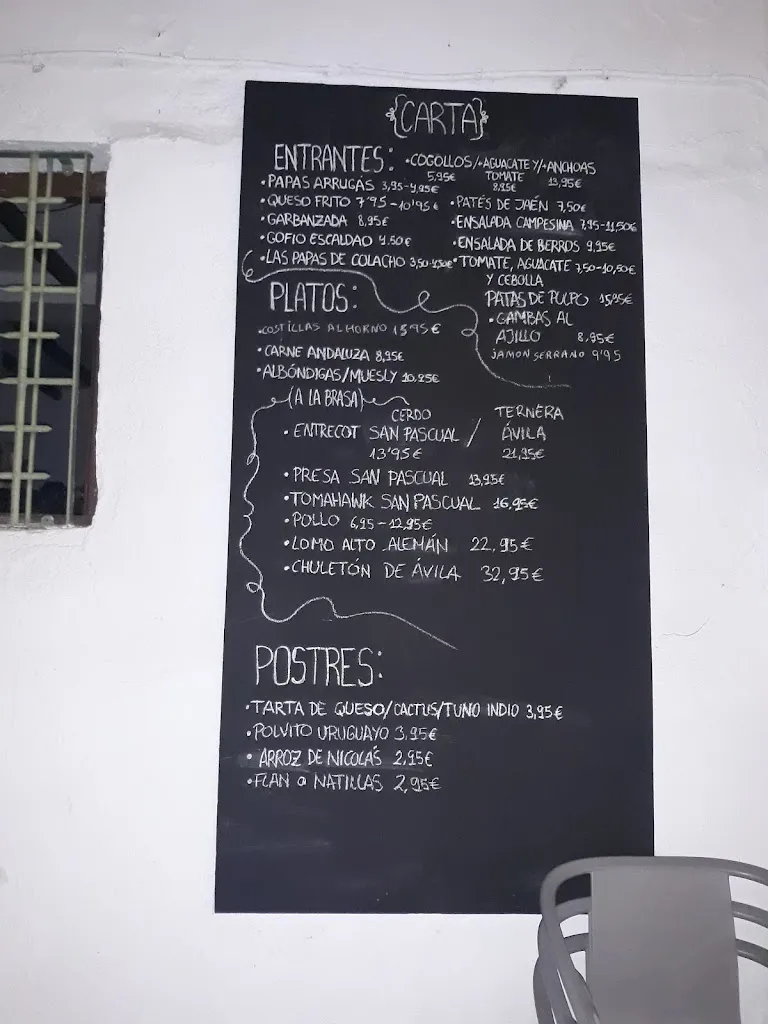 {CARTA}
ENTRANTES: •COGOLLOS/•AGUACATE Y/•ANCHOAS
5,95€ TOMATE 13,95€
8,95€
•PAPAS ARRUGÁS 3,95-4,95€
•QUESO FRITO 7'95-10'95€ •PATÉS DE JAÉN 7,50€
•GARBANZADA 8,95€ •ENSALADA CAMPESINA 7,95-11,50€
•GOFIO ESCALDAO 4.50€ •ENSALADA DE BERROS 9,95€
•LAS PAPAS DE COLACHO 3,50-4,50€ •TOMATE, AGUACATE 7,50-10,50€
Y CEBOLLA
PLATOS: PATAS DE PULPO 15,95€
•GAMBAS AL
•COSTILLAS AL HORNO 15'95€ AJILLO 8,95€
•CARNE ANDALUZA 8,95€ JAMON SERRANO 9'95
•ALBÓNDIGAS/MUESLY 10,95€
(A LA BRASA)
CERDO TERNERA
•ENTRECOT SAN PASCUAL / ÁVILA
13'95€ 21,95€
•PRESA SAN PASCUAL 13,95€
•TOMAHAWK SAN PASCUAL 16,95€
•POLLO 6,95-12,95€
•LOMO ALTO ALEMÁN 22,95€
•CHULETÓN DE ÁVILA 32,95€
POSTRES:
•TARTA DE QUESO/CACTUS/TUNO INDIO 3,95€
•POLVITO URUGUAYO 3,95€
•ARROZ DE NICOLÁS 2,95€
•FLAN o NATILLAS 2,95€